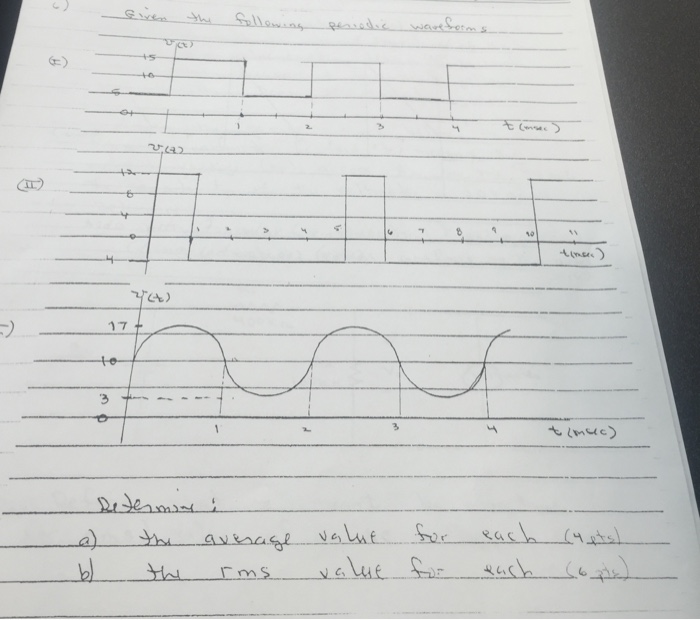 c) Given the following periodic waveforms
v(t)
(I)
15
10
5
0
1 2 3 4 t(msec)
v(t)
(II)
12
8
4
0
1 2 3 4 5 6 7 8 9 10 11
t(msec)
-4
v(t)
17
10
3
0
1 2 3 4 t(msec)
Determine:
a) the average value for each (4 pts)
b) the rms value for each (6 pts)